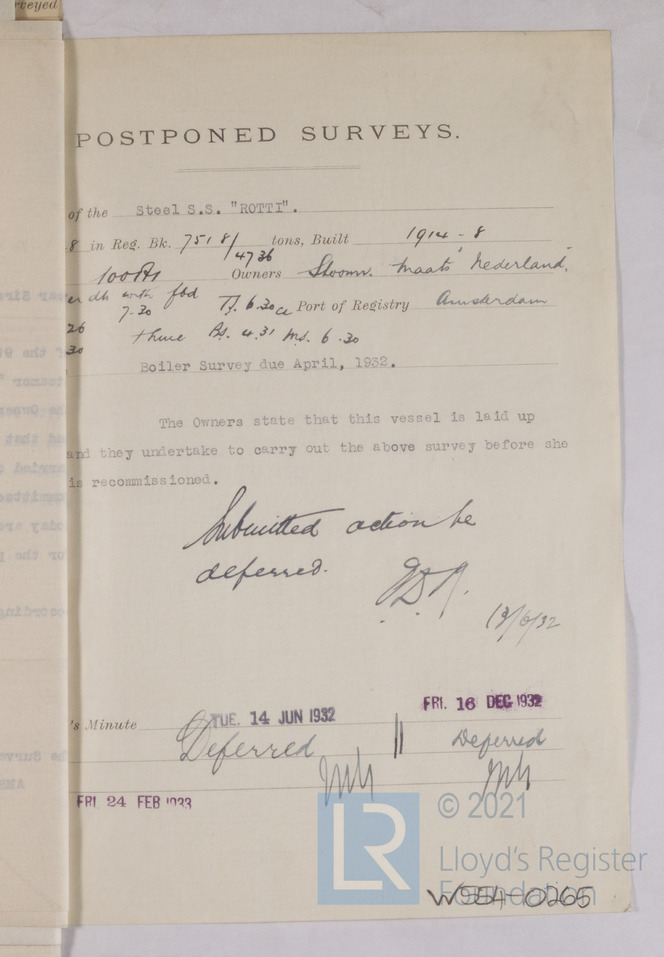 rveyed
POSTPONED SURVEYS.
of the Steel S.S. "ROTTI".
8 in Reg. Bk. 7518/4736 tons, Built 1914-8
100A1 Owners Stoom. Maats Nederland.
with fbd
7.30 TS. 6.30 Port of Registry Amsterdam
26
30 thure BS. 4.31 MS. 6.30
Boiler Survey due April, 1932.
The Owners state that this vessel is laid up
and they undertake to carry out the above survey before she
is recommissioned.
Submitted action be
deferred.
13/6/32
's Minute TUE. 14 JUN 1932 FRI. 16 DEC 1932
Deferred Deferred
FRI. 24 FEB 1933
LR © 2021
Lloyd's Register
Foundation
W554-0265